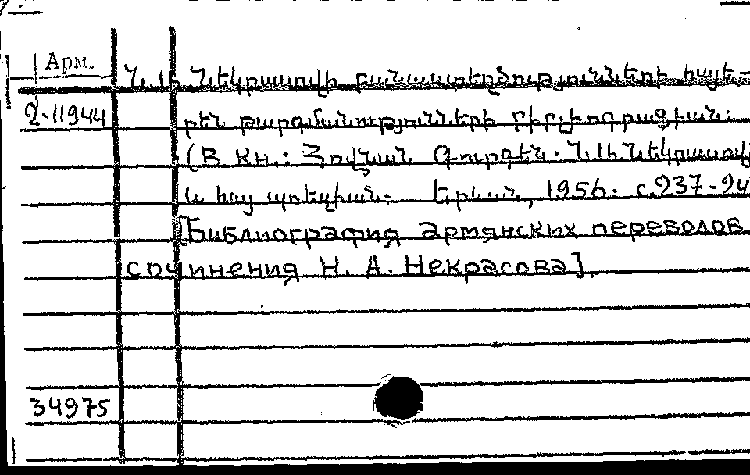 Арм.
2-11944
Ն. Ա. Նեկրասովի բանաստեղծությունների հայե-
րեն թարգմանությունների բիբլիոգրաֆիան:
(В кн.: Հովնան Գուրգեն. Ն. Ա. Նեկրասով
և հայ պոեզիան. Երևան, 1956. с. 237-24
[Библиография армянских переводов
сочинения Н. А. Некрасова].
34975